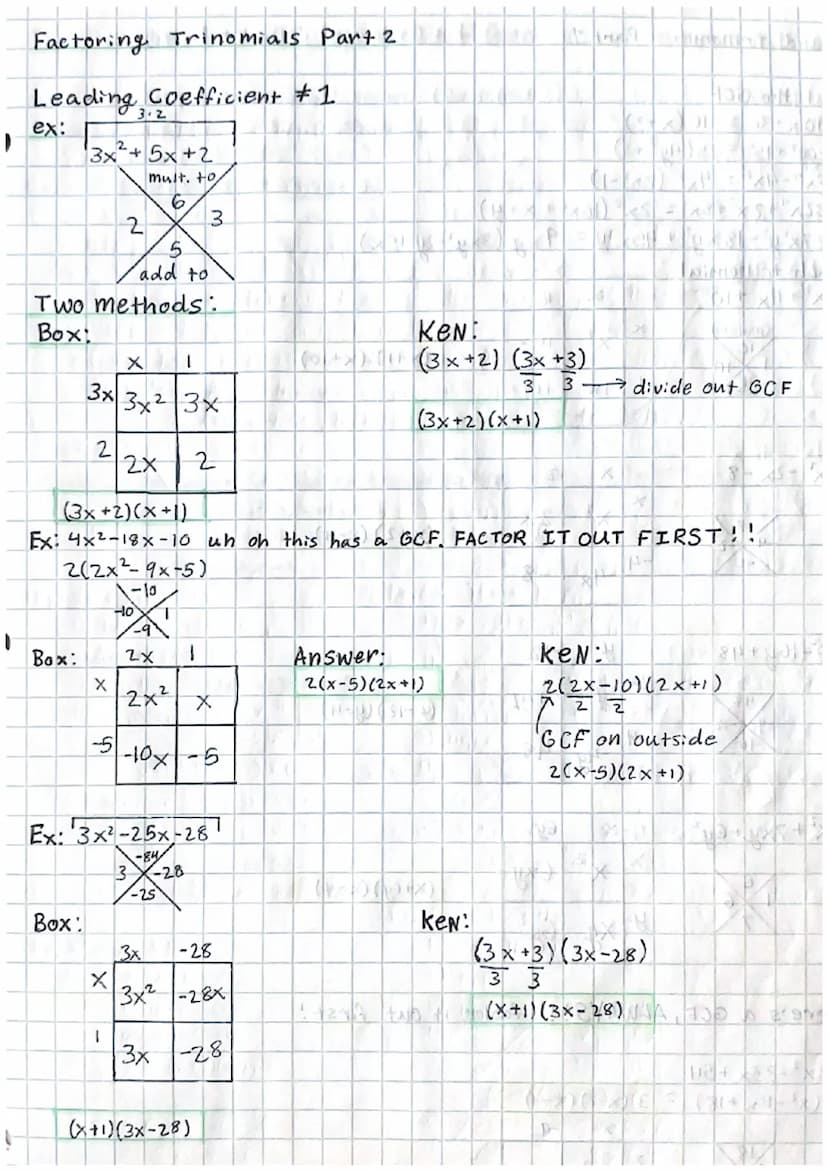 Factoring Trinomials Part 2
Leading Coefficient ≠ 1
3·2
ex:
3x²+ 5x +2
mult. to
6
2 3
5
add to
Two methods:
Box:
x 1
3x 3x² 3x
2 2x 2
(3x+2)(x+1)
KEN:
(3x+2) (3x +3)
3 3 → divide out GCF
(3x+2)(x+1)
Ex: 4x²-18x-10 uh oh this has a GCF. FACTOR IT OUT FIRST!!
2(2x²-9x-5)
-10
-10 1
-9
Box:
2x 1
x 2x² x
-5 -10x -5
Answer:
2(x-5)(2x+1)
KEN:
2(2x-10)(2x+1)
2 2
GCF on outside
2(x-5)(2x+1)
Ex: 3x²-25x-28
-84
3 -28
-25
Box:
3x -28
x 3x² -28x
1 3x -28
(x+1)(3x-28)
KEN:
(3x+3)(3x-28)
3 3
(x+1)(3x-28)